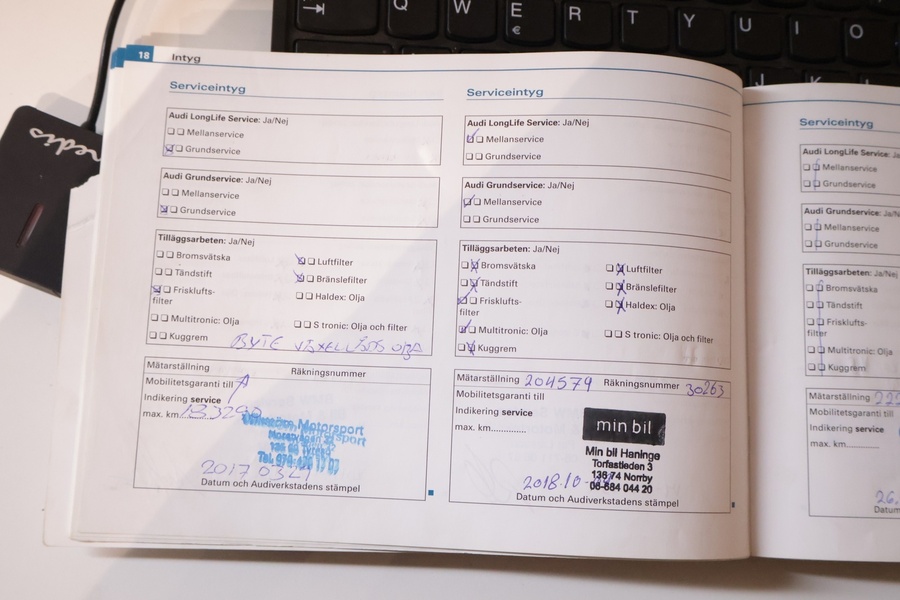 Q W E R T Y U I O
€
J K L
18 Intyg
Serviceintyg
Audi LongLife Service: Ja/Nej
Mellanservice
Grundservice
Audi Grundservice: Ja/Nej
Mellanservice
Grundservice
Tilläggsarbeten: Ja/Nej
Bromsvätska
Luftfilter
Tändstift
Bränslefilter
Frisklufts-
filter
Haldex: Olja
Multitronic: Olja
S tronic: Olja och filter
Kuggrem
BYTE VÄXELLÅDS OLJA
Mätarställning
Räkningsnummer
Mobilitetsgaranti till
Indikering service
max. km
Motorsport
2017 03
Datum och Audiverkstadens stämpel
Serviceintyg
Audi LongLife Service: Ja/Nej
Mellanservice
Grundservice
Audi Grundservice: Ja/Nej
Mellanservice
Grundservice
Tilläggsarbeten: Ja/Nej
Bromsvätska
Luftfilter
Tändstift
Bränslefilter
Frisklufts-
filter
Haldex: Olja
Multitronic: Olja
S tronic: Olja och filter
Kuggrem
Mätarställning 204579 Räkningsnummer 30263
Mobilitetsgaranti till
Indikering service
max. km.............
min bil
Min bil Haninge
Torfastleden 3
136 74 Norrby
08-684 044 20
2018.10-
Datum och Audiverkstadens stämpel
Serviceintyg
Audi LongLife Service: Ja
Mellanservice
Grundservice
Audi Grundservice: Ja/Nej
Mellanservice
Grundservice
Tilläggsarbeten: Ja/Nej
Bromsvätska
Tändstift
Frisklufts-
filter
Multitronic: Olja
Kuggrem
Mätarställning
Mobilitetsgaranti till
Indikering service
max. km.............
26.